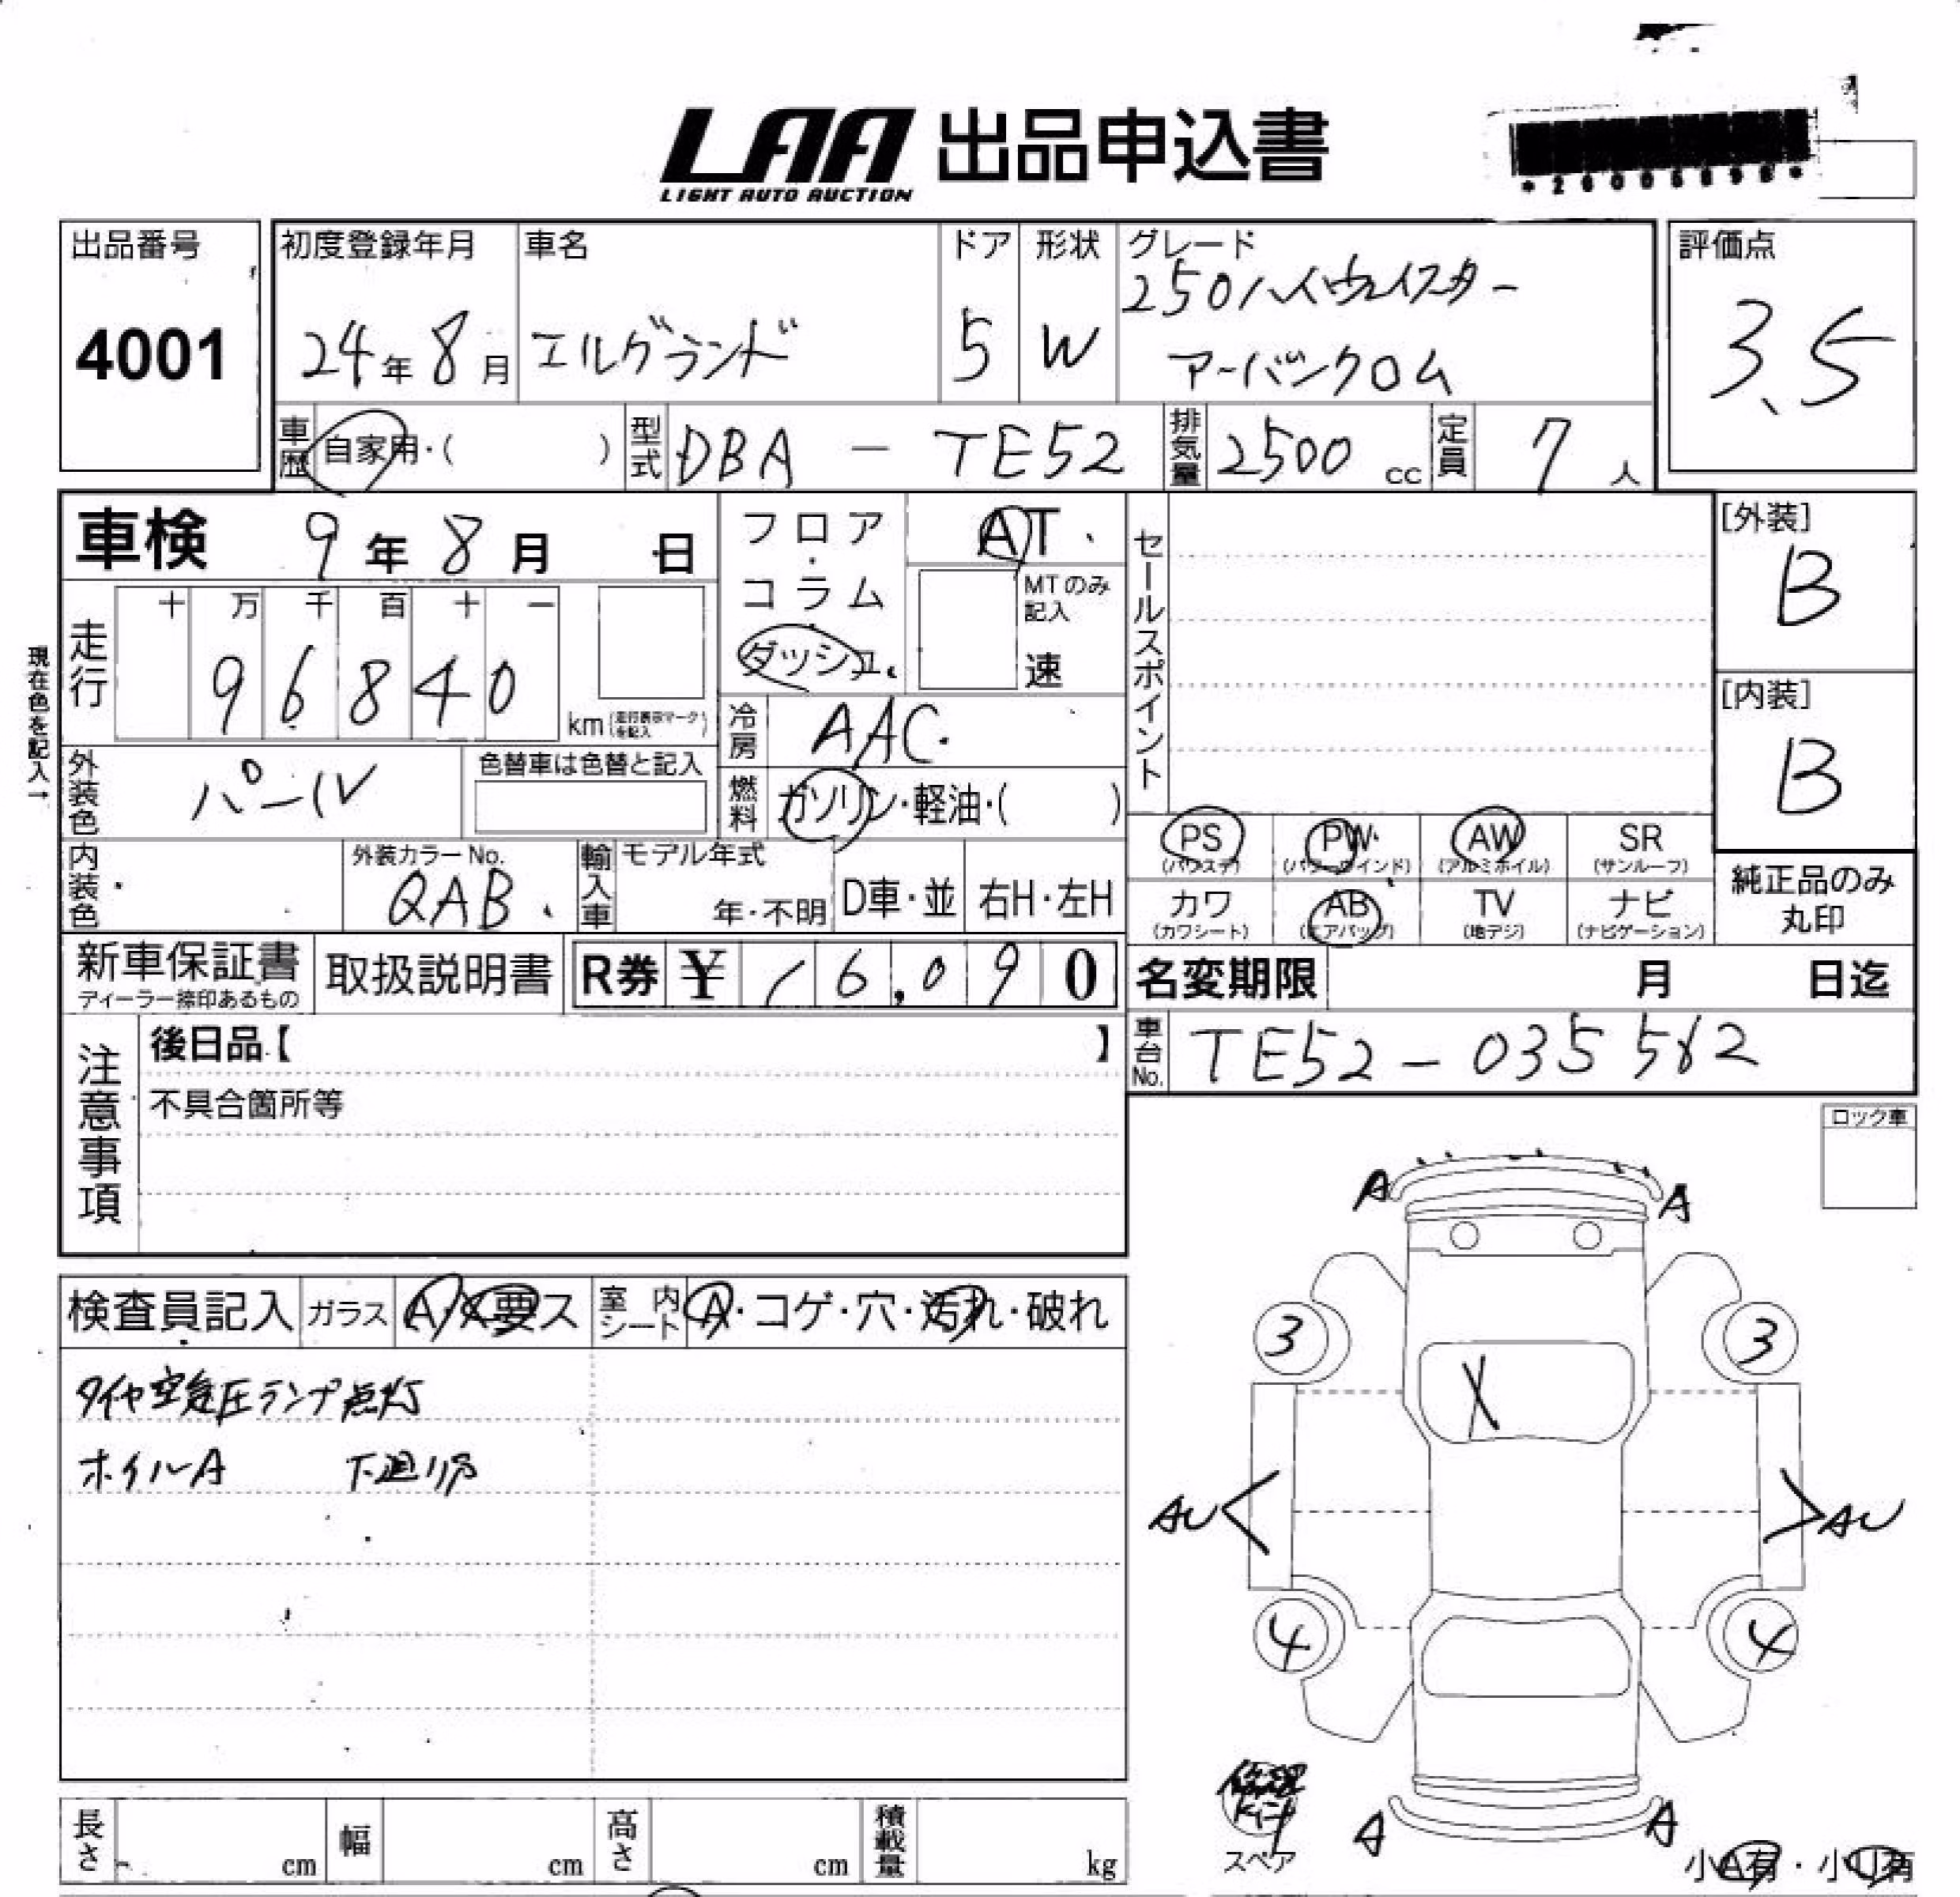 LAA 出品申込書
LIGHT AUTO AUCTION
出品番号 初度登録年月 車名 ドア 形状 グレード 評価点
4001 24年8月 エルグランド 5 W 250ハイウェイスター
アーバンクロム 3.5
車歴 自家用・( ) 型式 DBA - TE52 排気量 2500 cc 定員 7 人
車検 9年 8月 日 フロア・コラム・ダッシュ AT セールスポイント [外装]
B
MTのみ記入 速
走行 十 万 千 百 十 一
96840 km (走行表示マークを記入)
[内装]
B
現在色を記入→
冷房 AAC
外装色 パール 色替車は色替と記入
燃料 ガソリン・軽油・( )
PS PW AW SR
(パワステ) (パワーウインド) (アルミホイル) (サンルーフ)
内装色 外装カラーNo. QAB 輸入車 モデル年式 年・不明 D車・並 右H・左H
カワ AB TV ナビ 純正品のみ
(カワシート) (エアバッグ) (地デジ) (ナビゲーション) 丸印
新車保証書 取扱説明書 R券 ¥ 16,090 名変期限 月 日迄
ディーラー捺印あるもの
注意事項 後日品【 】 車台No. TE52-035562
不具合箇所等
ロック車
A A
検査員記入 ガラス A・ 要ス 室内シート A・コゲ・穴・汚れ・破れ
3 3
タイヤ空気圧ランプ点灯
X
ホイルA 下廻りS
AU AU
4 4
修理キット
A A
スペア 小A有・小U有
長さ cm 幅 cm 高さ cm 積載量 kg